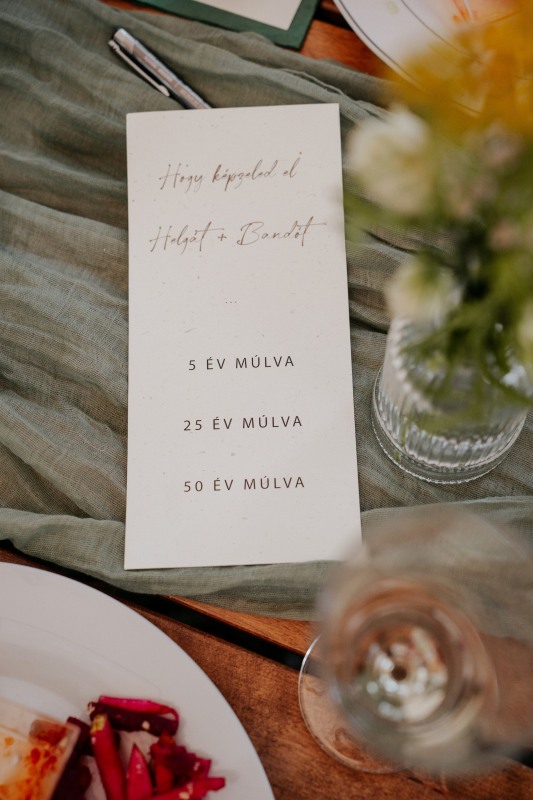 Hogy képzeled el
Helgát + Bandót
...
5 ÉV MÚLVA
25 ÉV MÚLVA
50 ÉV MÚLVA